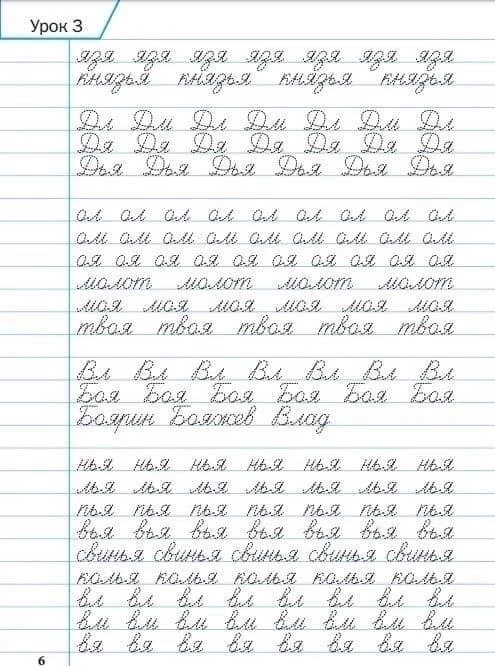 Урок 3
язя язя язя язя язя язя язя
князья князья князья князья
Дл Дм Дл Дм Дл Дм Дл
Дя Дя Дя Дя Дя Дя Дя
Дья Дья Дья Дья Дья Дья
ол ол ол ол ол ол ол ол ол
ом ом ом ом ом ом ом ом ом
оя оя оя оя оя оя оя оя оя оя
молот молот молот молот
моя моя моя моя моя моя
твоя твоя твоя твоя твоя
Вл Вл Вл Вл Вл Вл Вл
Боя Боя Боя Боя Боя Боя
Боярин Бояжев Влад
нья нья нья нья нья нья нья
лья лья лья лья лья лья лья
пья пья пья пья пья пья пья
вья вья вья вья вья вья вья
свинья свинья свинья свинья свинья
колья колья колья колья колья
вл вл вл вл вл вл вл вл
вм вм вм вм вм вм вм вм
вя вя вя вя вя вя вя вя
6